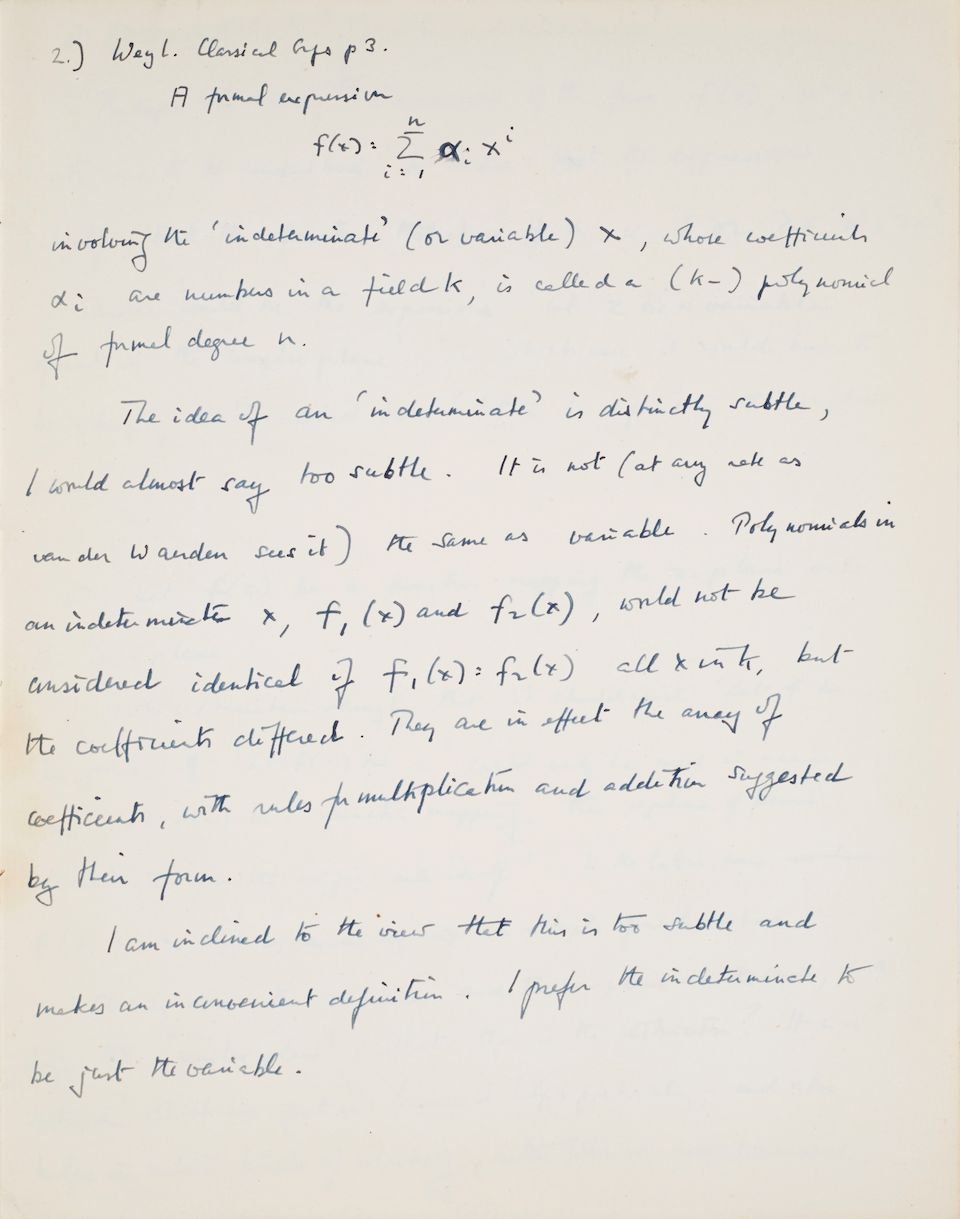 2.) Weyl. Classical Grps p 3.
A formal expression
f(x) = n Σ i=1 αᵢ xⁱ
involving the 'indeterminate' (or variable) x, whose coefficients
αᵢ are numbers in a field k, is called a (k-) polynomial
of formal degree n.
The idea of an 'indeterminate' is distinctly subtle,
I would almost say too subtle. It is not (at any rate as
van der Waerden sees it) the same as variable. Polynomials in
an indeterminate x, f₁(x) and f₂(x), would not be
considered identical if f₁(x) = f₂(x) all x in k, but
the coefficients differed. They are in effect the array of
coefficients, with rules for multiplication and addition suggested
by their form.
I am inclined to the view that this is too subtle and
makes an inconvenient definition. I prefer the indeterminate to
be just the variable.